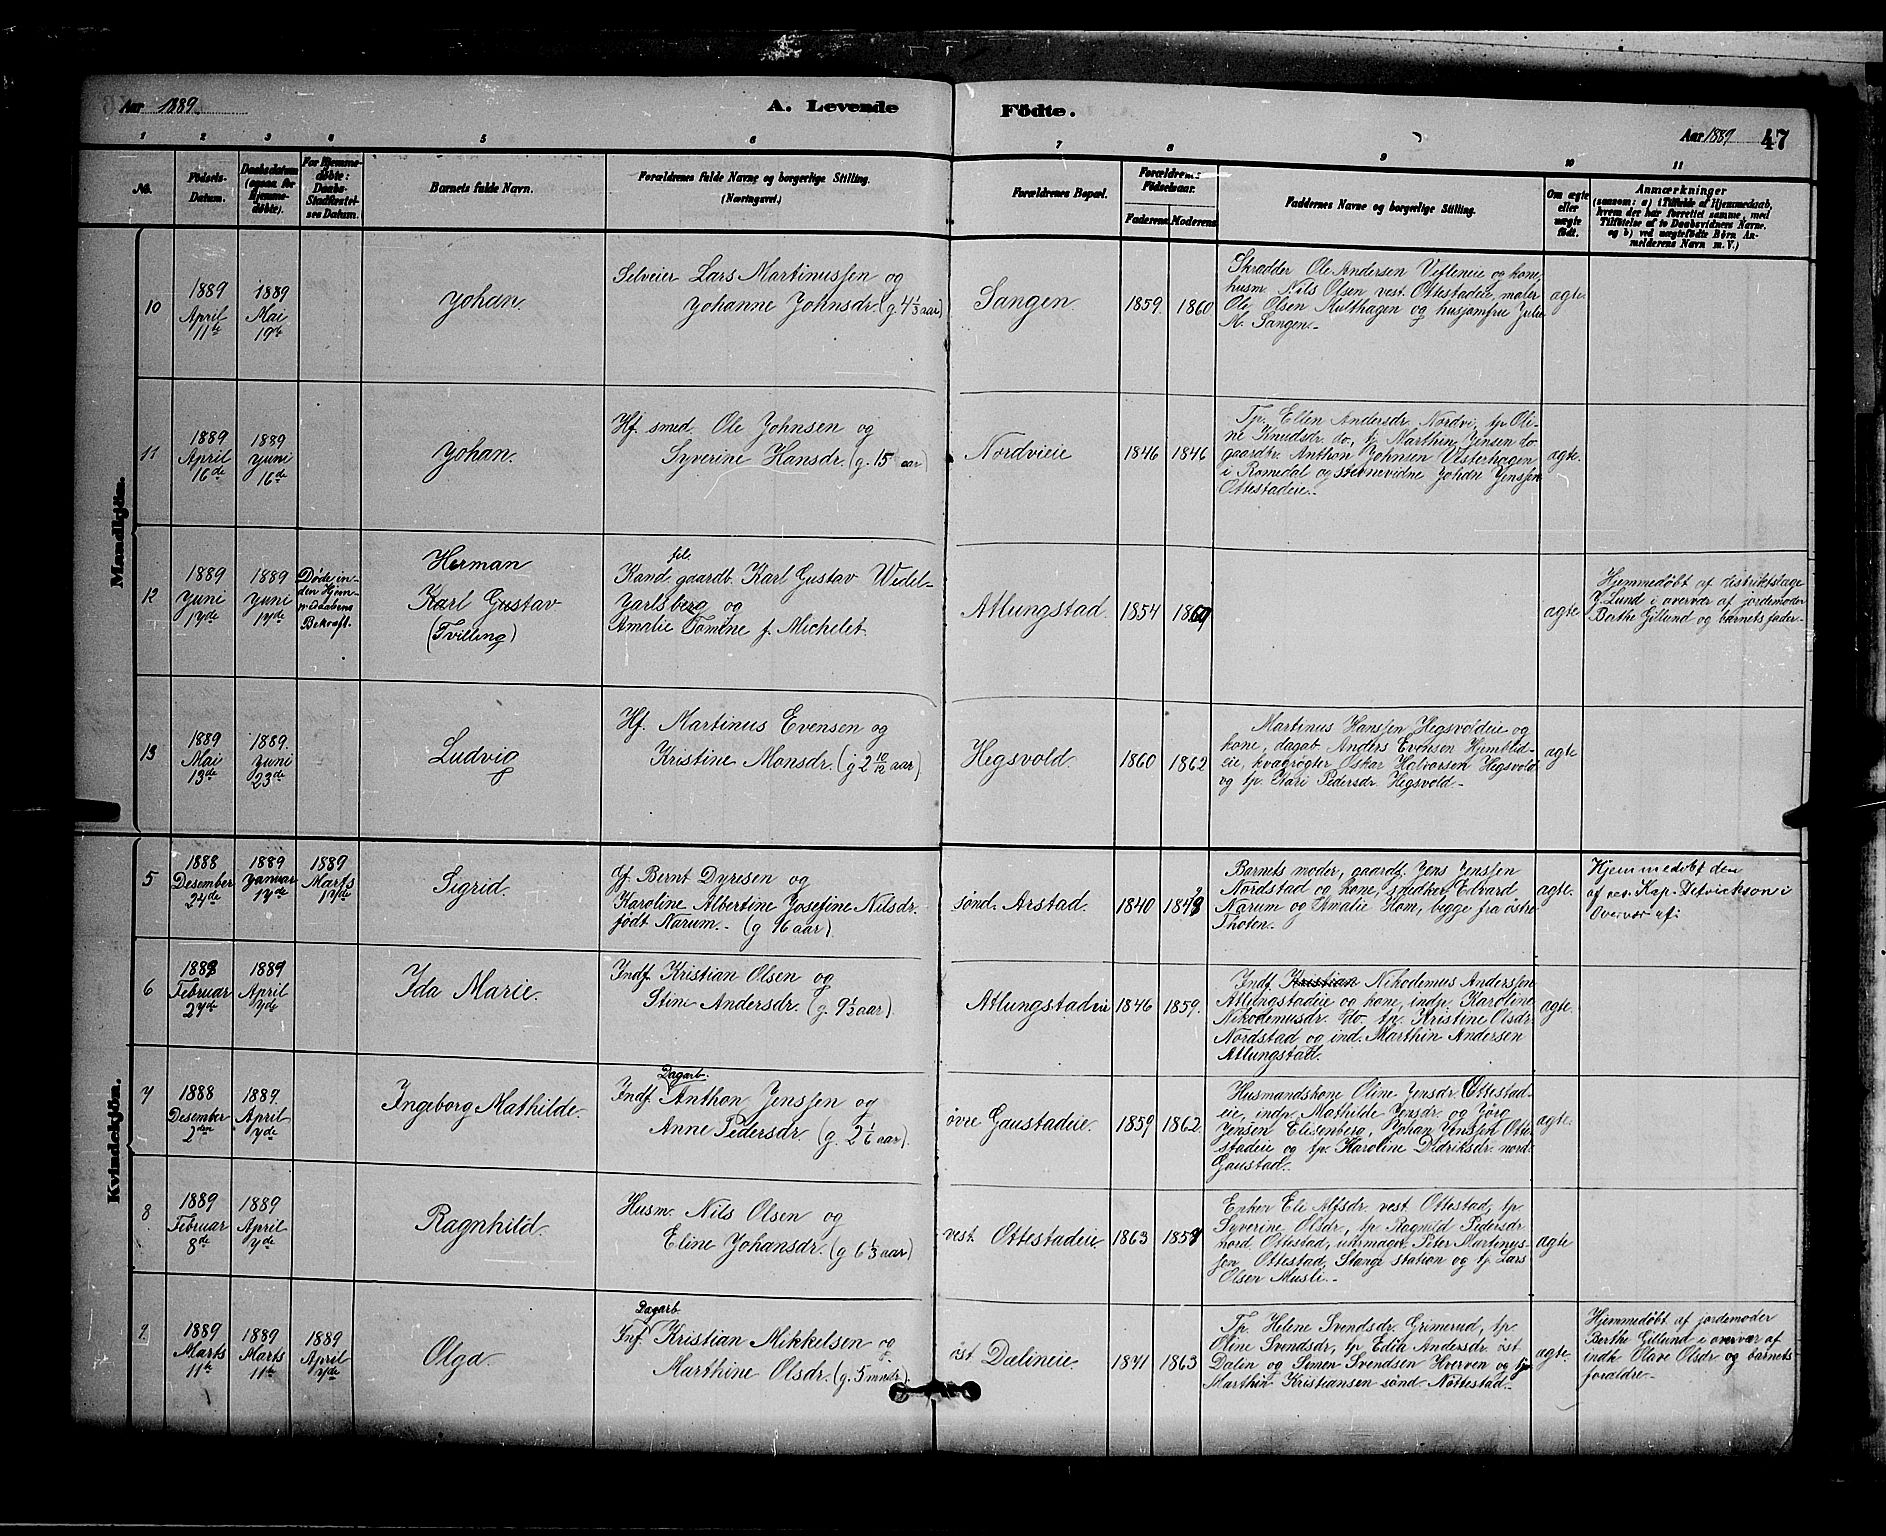 Aar 1889
A. Levende
Födte.
Aar 1889
47
1 2 3 4 5 6 7 8 9 10 11
No.
Födsels-
Datum.
Daabsdatum
(ogsaa for
Hjemme-
døbte).
For Hjemme-
døbte:
Daabs-
Stadfæstel-
ses Datum.
Barnets fulde Navn.
Forældrenes fulde Navne og borgerlige Stilling.
(Næringsvei.)
Forældrenes Bopæl.
Forældrenes
Födselsaar.
Faderens Moderens
Faddernes Navne og borgerlige Stilling.
Om ægte
eller
uægte
født.
Anmærkninger
(saasom: a) i Tilfælde af Hjemmedaab,
hvem der har forrettet samme, med
Tilføielse af to Daabsvidners Navne.
og b) ved uægtefødte Børn An-
melderens Navn m. V.)
Mandkjön.
10
1889
April
11te
1889
Mai
19de
Johan.
Selveier Lars Martinussen og
Johanne Johnsdr. (g. 4 1/3 aar)
Sangen.
1859. 1860
Skrædder Ole Andersen Vifleneie og kone,
husm. Nils Olsen vest. Ottestadeie, maler
Ole Olsen Hulthagen og husjomfru Julie
M. Sangen.-
ægte.
11
1889
April
16de
1889
Juni
16de
Johan.
Hf. smed. Ole Johnsen og
Syverine Hansdr. (g. 15 aar)
Nordvieie
1846 1846
Tp. Ellen Andersdr Nordvi, tp Oli-
ne Knudsdr. do, tj. Marthin Jensen do
gaardbr. Anthon Johnsen Vesterhagen
i Romedal og stevnevidne Johan Jenssen
Ottestadeie.-
ægte.
12
1889
Juni
17de
1889
Juni
17de
Døde in-
den Hjem-
Daabens
Bekræft.
Herman
Karl Gustav
(Tvilling)
fil.
Kand. gaardb. Karl Gustav Wedel-
Jarlsberg og
Amalie Tomine f. Michelet.
Atlungstad.
1854 1869
ægte
Hjemmedøbt af distriktslæge
Lund i overvær af jordemoder
Berthe Gillund og barnets fader-
13
1889
Mai
13de
1889.
Juni
23de
Ludvig
Hf. Martinus Evensen og
Kristine Monsdr. (g 2 10/12 aar)
Hegsvold.
1860 1862
Martinus Hanssen Hegsvoldeie og
kone, dagab Anders Evensen Hjemblid-
eie, kvægrøgter Oskar Halvorsen Hegsvold
og tp. Kari Pedersdr Hegsvold.-
ægte
Kvindekjön.
5
1888
Desember
24de
1889
Januar
17de
1889
Marts
17de
Sigrid.
Gf. Bernt Dyresen og
Karoline Albertine Josefine Nilsdr.
født Narum.- (g 16 aar).
sønd. Arstad.
1840 1843
Barnets moder, gaardf. Jens Jenssen
Nordstad og kone, Edvard
Narum og Amalie Hom, begge fra østre
Thoten.-
ægte.
Hjemmedöbt den
af res. Kap. Detrickson i
Overvær af:
6
1889
Februar
27de
1889
April
7de
Ida Marie.
Indf. Kristian Olsen og
Stine Andersdr. (g. 9 1/2 aar).
Atlungstadeie
1846 1859.
Indf. Kristian Nikodemus Anderssen
Atlungstadeie og kone, indp. Karoline
Nikodemusdr. do. tp. Kristine Olsdr.
Nordstad og ind. Marthin Andersen
Atlungstad.
ægte.
7
1888
Desember
2den
1889.
April
7de
Ingeborg Mathilde.
Dagarb.
Indf. Anthon Jenssen og
Anne Pedersdr. (g. 2 1/6 aar).
övre Gaustadeie.
1859 1862.
Husmandskone Oline Jensdr. Ottestad-
eie, indp. Mathilde Jensdr. og Jörg
Jensen Elisenberg, Johan Jenssen Otte-
stadeie og tp. Karoline Didriksdr. nord.
Gaustad.
ægte.
8
1889
Februar
8de
1889
April
7de
Ragnhild.
Husm. Nils Olsen og
Eline Johansdr. (g 6 1/3 aar)
vest. Ottestadeie.
1863 1857
Enken Eli Alfsdr. vest. Ottestad, tp
Syverine Olsdr, tp Ragnild Pedersdr
nord. Ottestad, urmager Peter Martinus-
sen Ottestad, Stange station og tj. Lars
Olsen Musli.-
ægte
9.
1889
Marts
11te
1889
Marts
11te
1889
April
7de
Olga.
Dagarb.
Inf. Kristian Mikkelsen og
Marthine Olsdr. (g. 5 mndr.)
öst. Dælineie.
1841 1863
Tp. Helene Svendsdr. Grimerud, tp
Oline Svendsdr, tp Edia Andersdr. öst.
Dalin og Simen Svendsen Hverven og tj.
Marthin Kristiansen sönd. Nøttestad.-
ægte.
Hjemmedøbt af jordemoder
Berthe Gillund i overvær af
indk. Olave Olsdr. og barnets
forældre.-